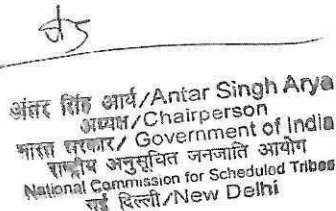 अंतर सिंह आर्य/Antar Singh Arya
अध्यक्ष/Chairperson
भारत सरकार/ Government of India
राष्ट्रीय अनुसूचित जनजाति आयोग
National Commission for Scheduled Tribes
नई दिल्ली/New Delhi